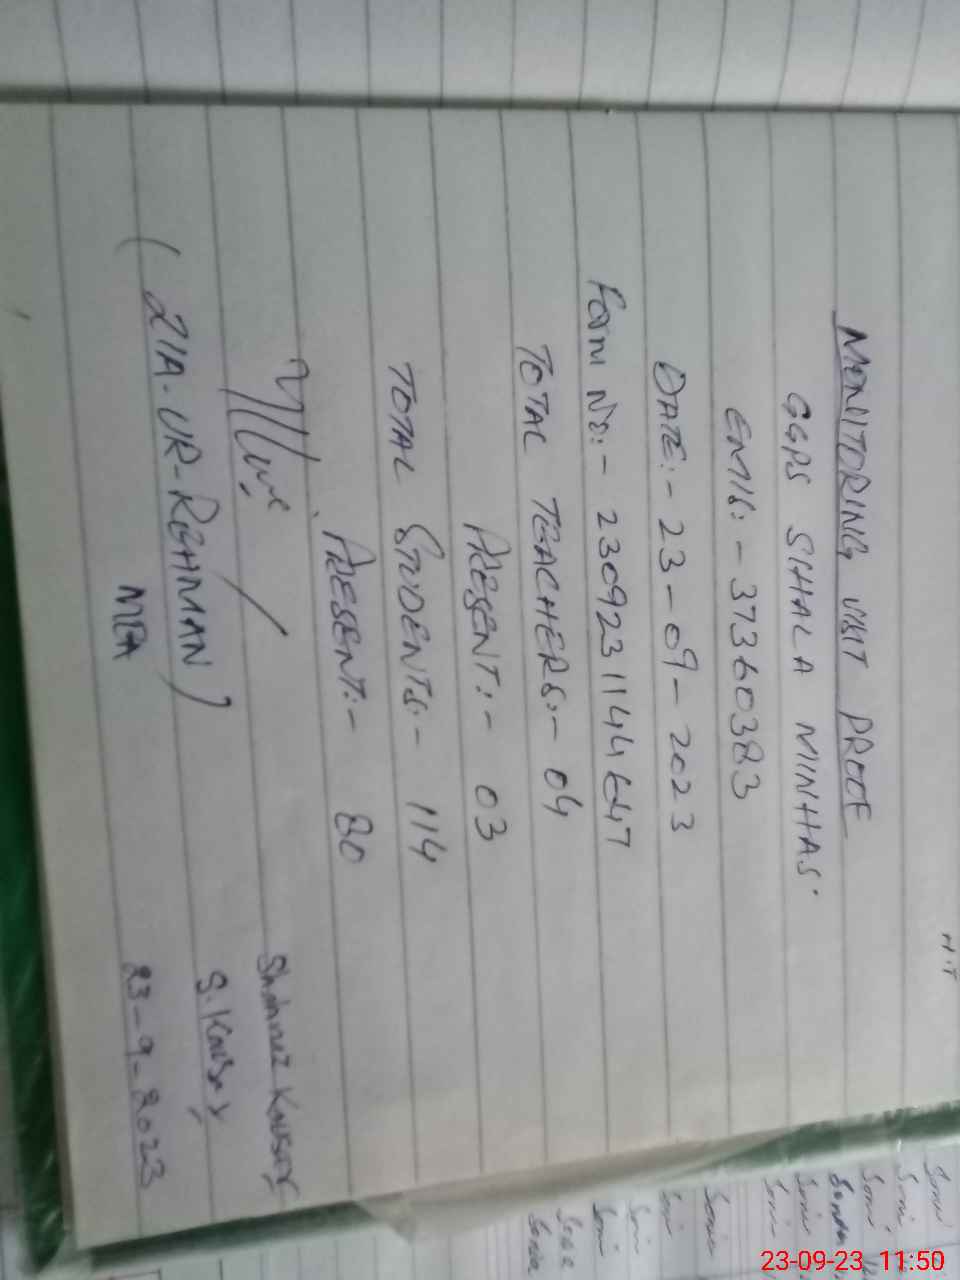 MONITORING VISIT PROOF
GGPS SIHALA MINHAS.
EMIS:- 37360383
DATE:- 23-09-2023
FORM NO:- 230923114464​7
TOTAL TEACHERS:- 04
PRESENT:- 03
TOTAL STUDENTS:- 114
PRESENT:- 80
(ZIA-UR-REHMAN)
MEA
Shahnaz Kausar
S. Kausar
23-9-2023
H.T
23-09-23 11:50